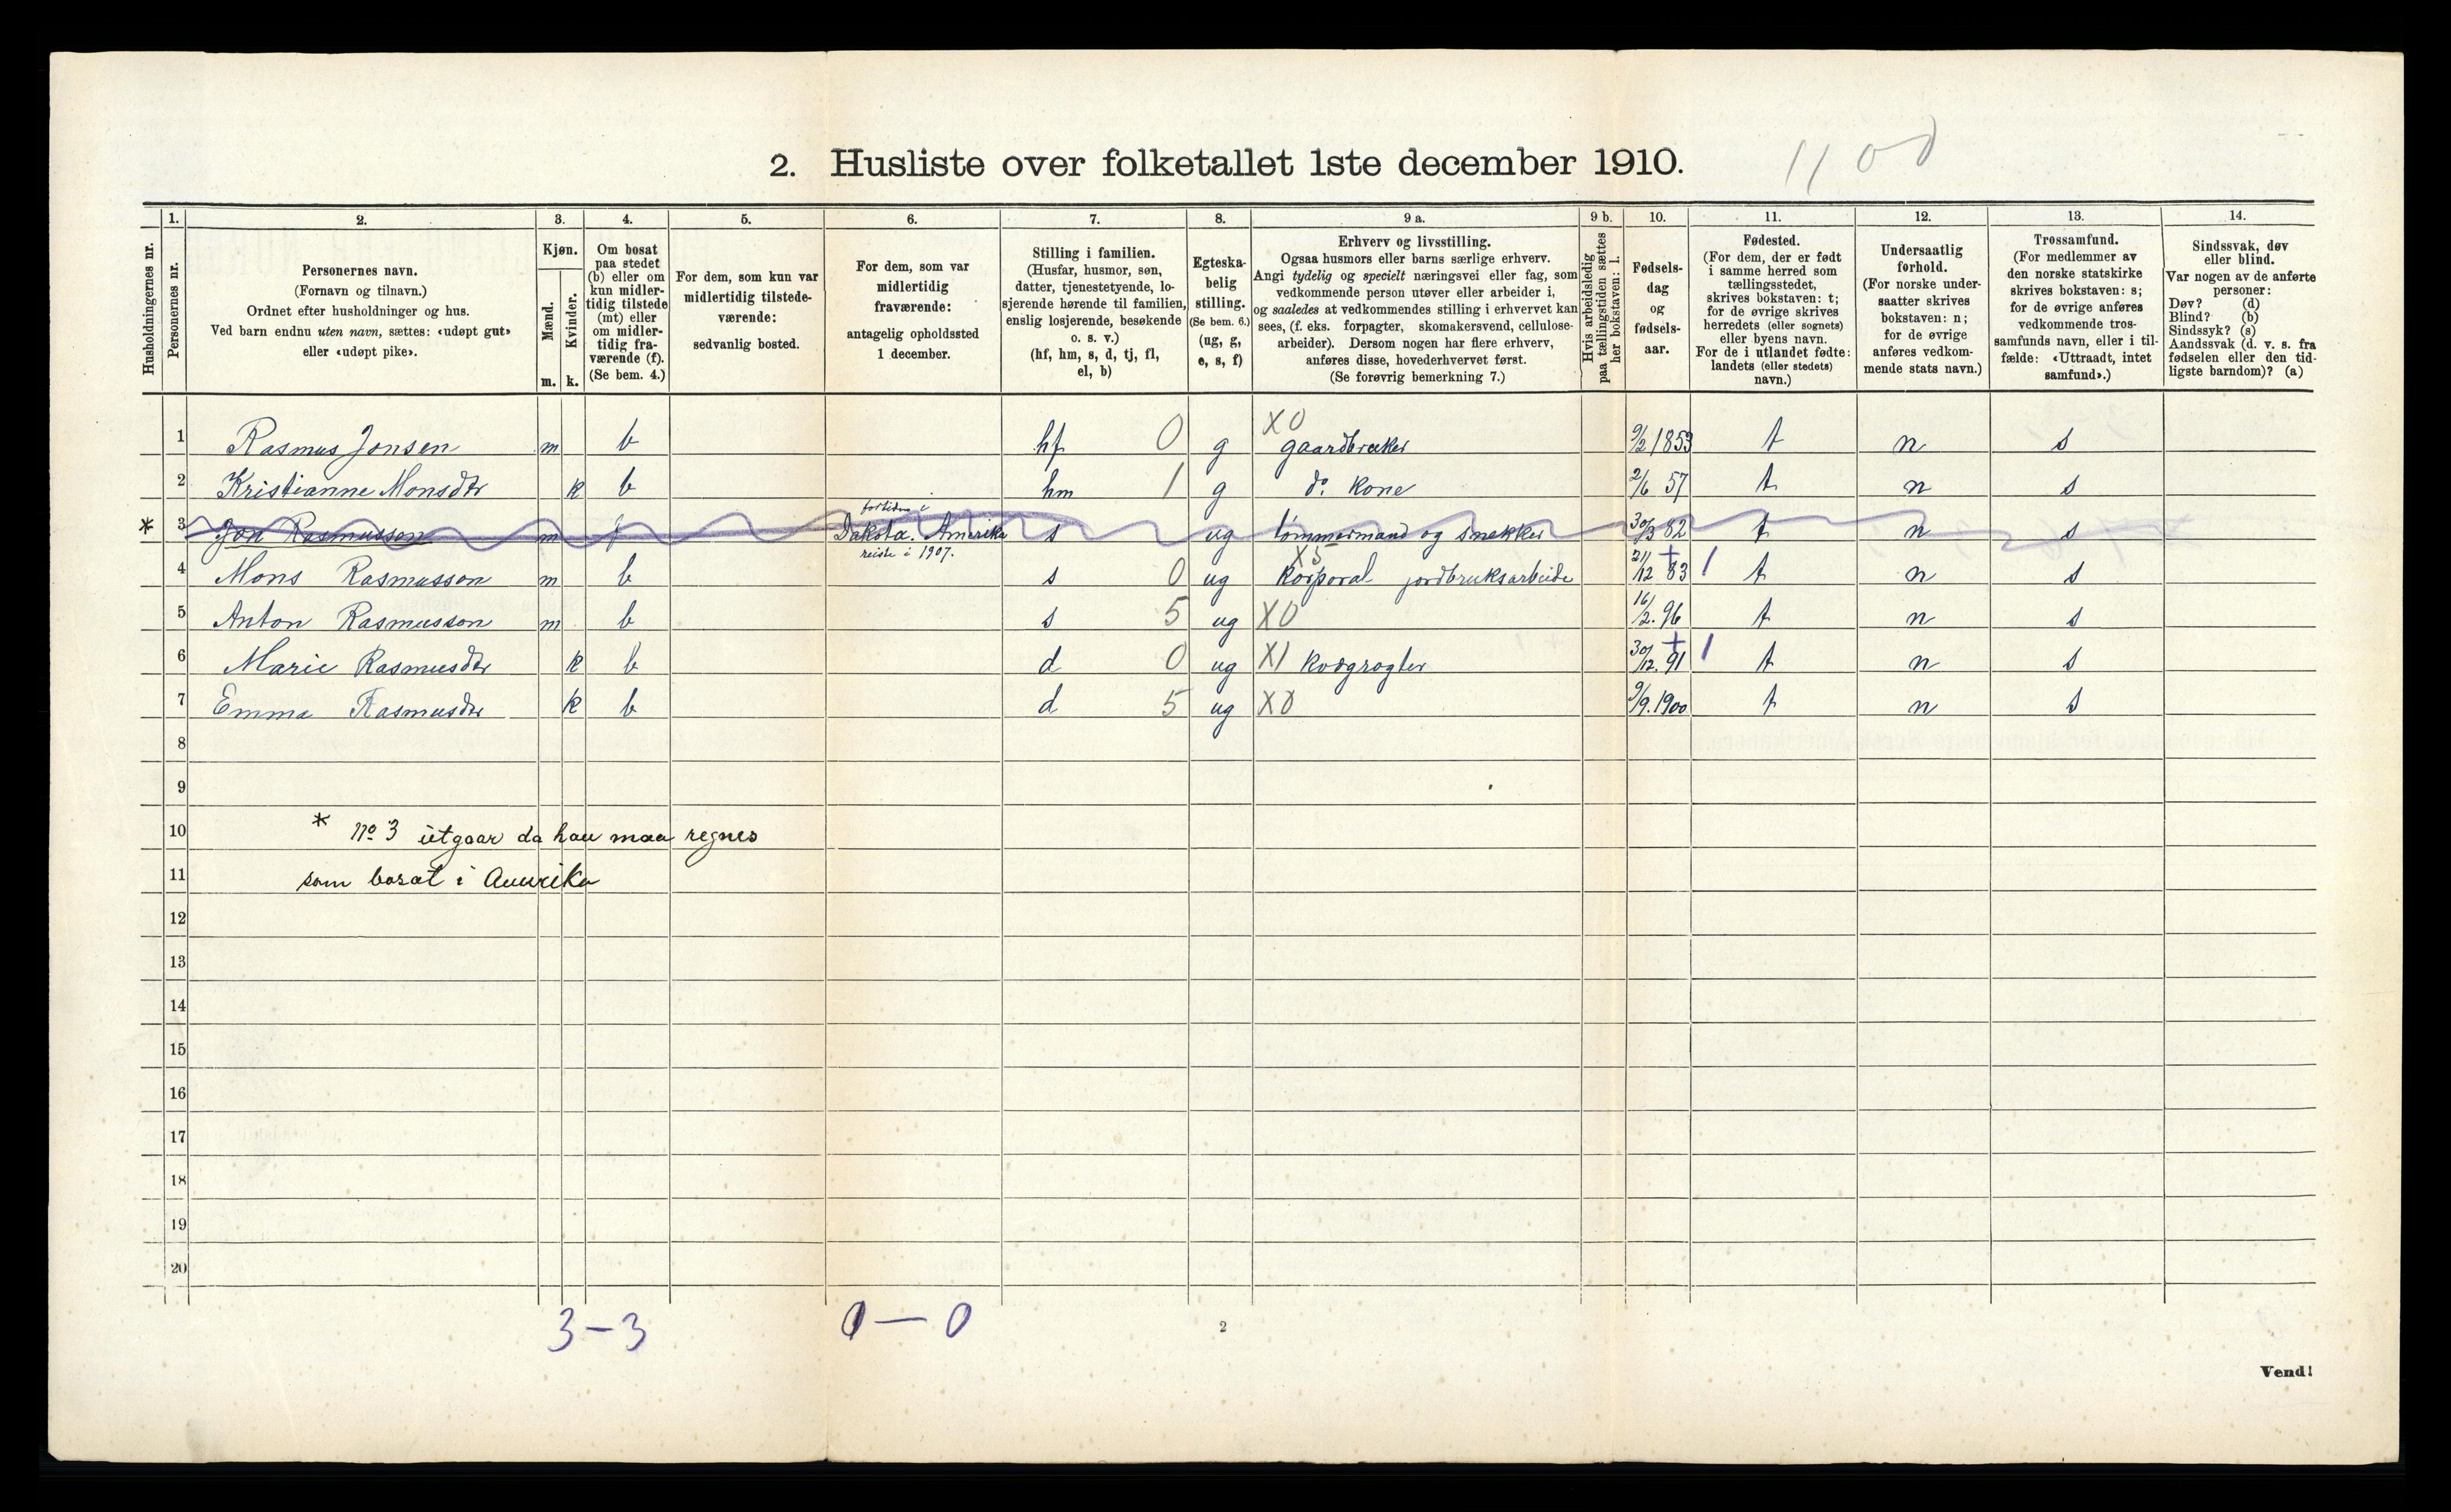 2. Husliste over folketallet 1ste december 1910.
1100
Husholdningernes nr.
1.
Personernes nr.
2.
Personernes navn.
(Fornavn og tilnavn.)
Ordnet efter husholdninger og hus.
Ved barn endnu uten navn, sættes: «udøpt gut»
eller «udøpt pike».
3.
Kjøn.
Mænd.
Kvinder.
m. k.
4.
Om bosat
paa stedet
(b) eller om
kun midler-
tidig tilstede
(mt) eller
om midler-
tidig fra-
værende (f).
(Se bem. 4.)
5.
For dem, som kun var
midlertidig tilstede-
værende:
sedvanlig bosted.
6.
For dem, som var
midlertidig
fraværende:
antagelig opholdssted
1 december.
7.
Stilling i familien.
(Husfar, husmor, søn,
datter, tjenestetyende, lo-
sjerende hørende til familien,
enslig losjerende, besøkende
o. s. v.)
(hf, hm, s, d, tj, fl,
el, b)
8.
Egteska-
belig
stilling.
(Se bem. 6.)
(ug, g,
e, s, f)
9 a.
Erhverv og livsstilling.
Ogsaa husmors eller barns særlige erhverv.
Angi tydelig og specielt næringsvei eller fag, som
vedkommende person utøver eller arbeider i,
og saaledes at vedkommendes stilling i erhvervet kan
sees, (f. eks. forpagter, skomakersvend, cellulose-
arbeider). Dersom nogen har flere erhverv,
anføres disse, hovederhvervet først.
(Se forøvrig bemerkning 7.)
9 b.
Hvis arbeidsledig
paa tællingstiden sættes
her bokstaven: l.
10.
Fødsels-
dag
og
fødsels-
aar.
11.
Fødested.
(For dem, der er født
i samme herred som
tællingsstedet,
skrives bokstaven: t;
for de øvrige skrives
herredets (eller sognets)
eller byens navn.
For de i utlandet fødte:
landets (eller stedets)
navn.)
12.
Undersaatlig
forhold.
(For norske under-
saatter skrives
bokstaven: n;
for de øvrige
anføres vedkom-
mende stats navn.)
13.
Trossamfund.
(For medlemmer av
den norske statskirke
skrives bokstaven: s;
for de øvrige anføres
vedkommende tros-
samfunds navn, eller i til-
fælde: «Uttraadt, intet
samfund».)
14.
Sindssvak, døv
eller blind.
Var nogen av de anførte
personer:
Døv? (d)
Blind? (b)
Sindssyk? (s)
Aandssvak (d. v. s. fra
fødselen eller den tid-
ligste barndom)? (a)
1 Rasmus Jonsen m b hf 0 g X0 gaardbruker 9/2 1853 t n s
2 Kristianne Monsdtr k b hm 1 g do. Kone 2/6 57 t n s
* 3 Jon Rasmusson m f fortiden i Dakota. Amerika reiste i 1907. s ug tømmermand og snekker 30/3 82 t n s
4 Mons Rasmusson m b s 0 ug X5 Korporal jordbruksarbeide 21/12 83 + 1 t n s
5 Anton Rasmusson m b s 5 ug X0 16/2. 96 t n s
6 Marie Rasmusdtr k b d 0 ug X1 Kvægrøgter 30/12. 91 + 1 t n s
7 Emma Rasmusdtr k b d 5 ug X0 9/9. 1900 t n s
8
9
10 * No 3 utgaar da han maa regnes
11 som bosat i Amerika
12
13
14
15
16
17
18
19
20
3 – 3 0 — 0
2
Vend!